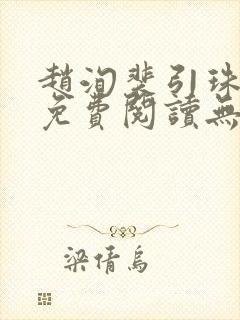 趙洵裴引珠
免費閱讀無
梁倩烏